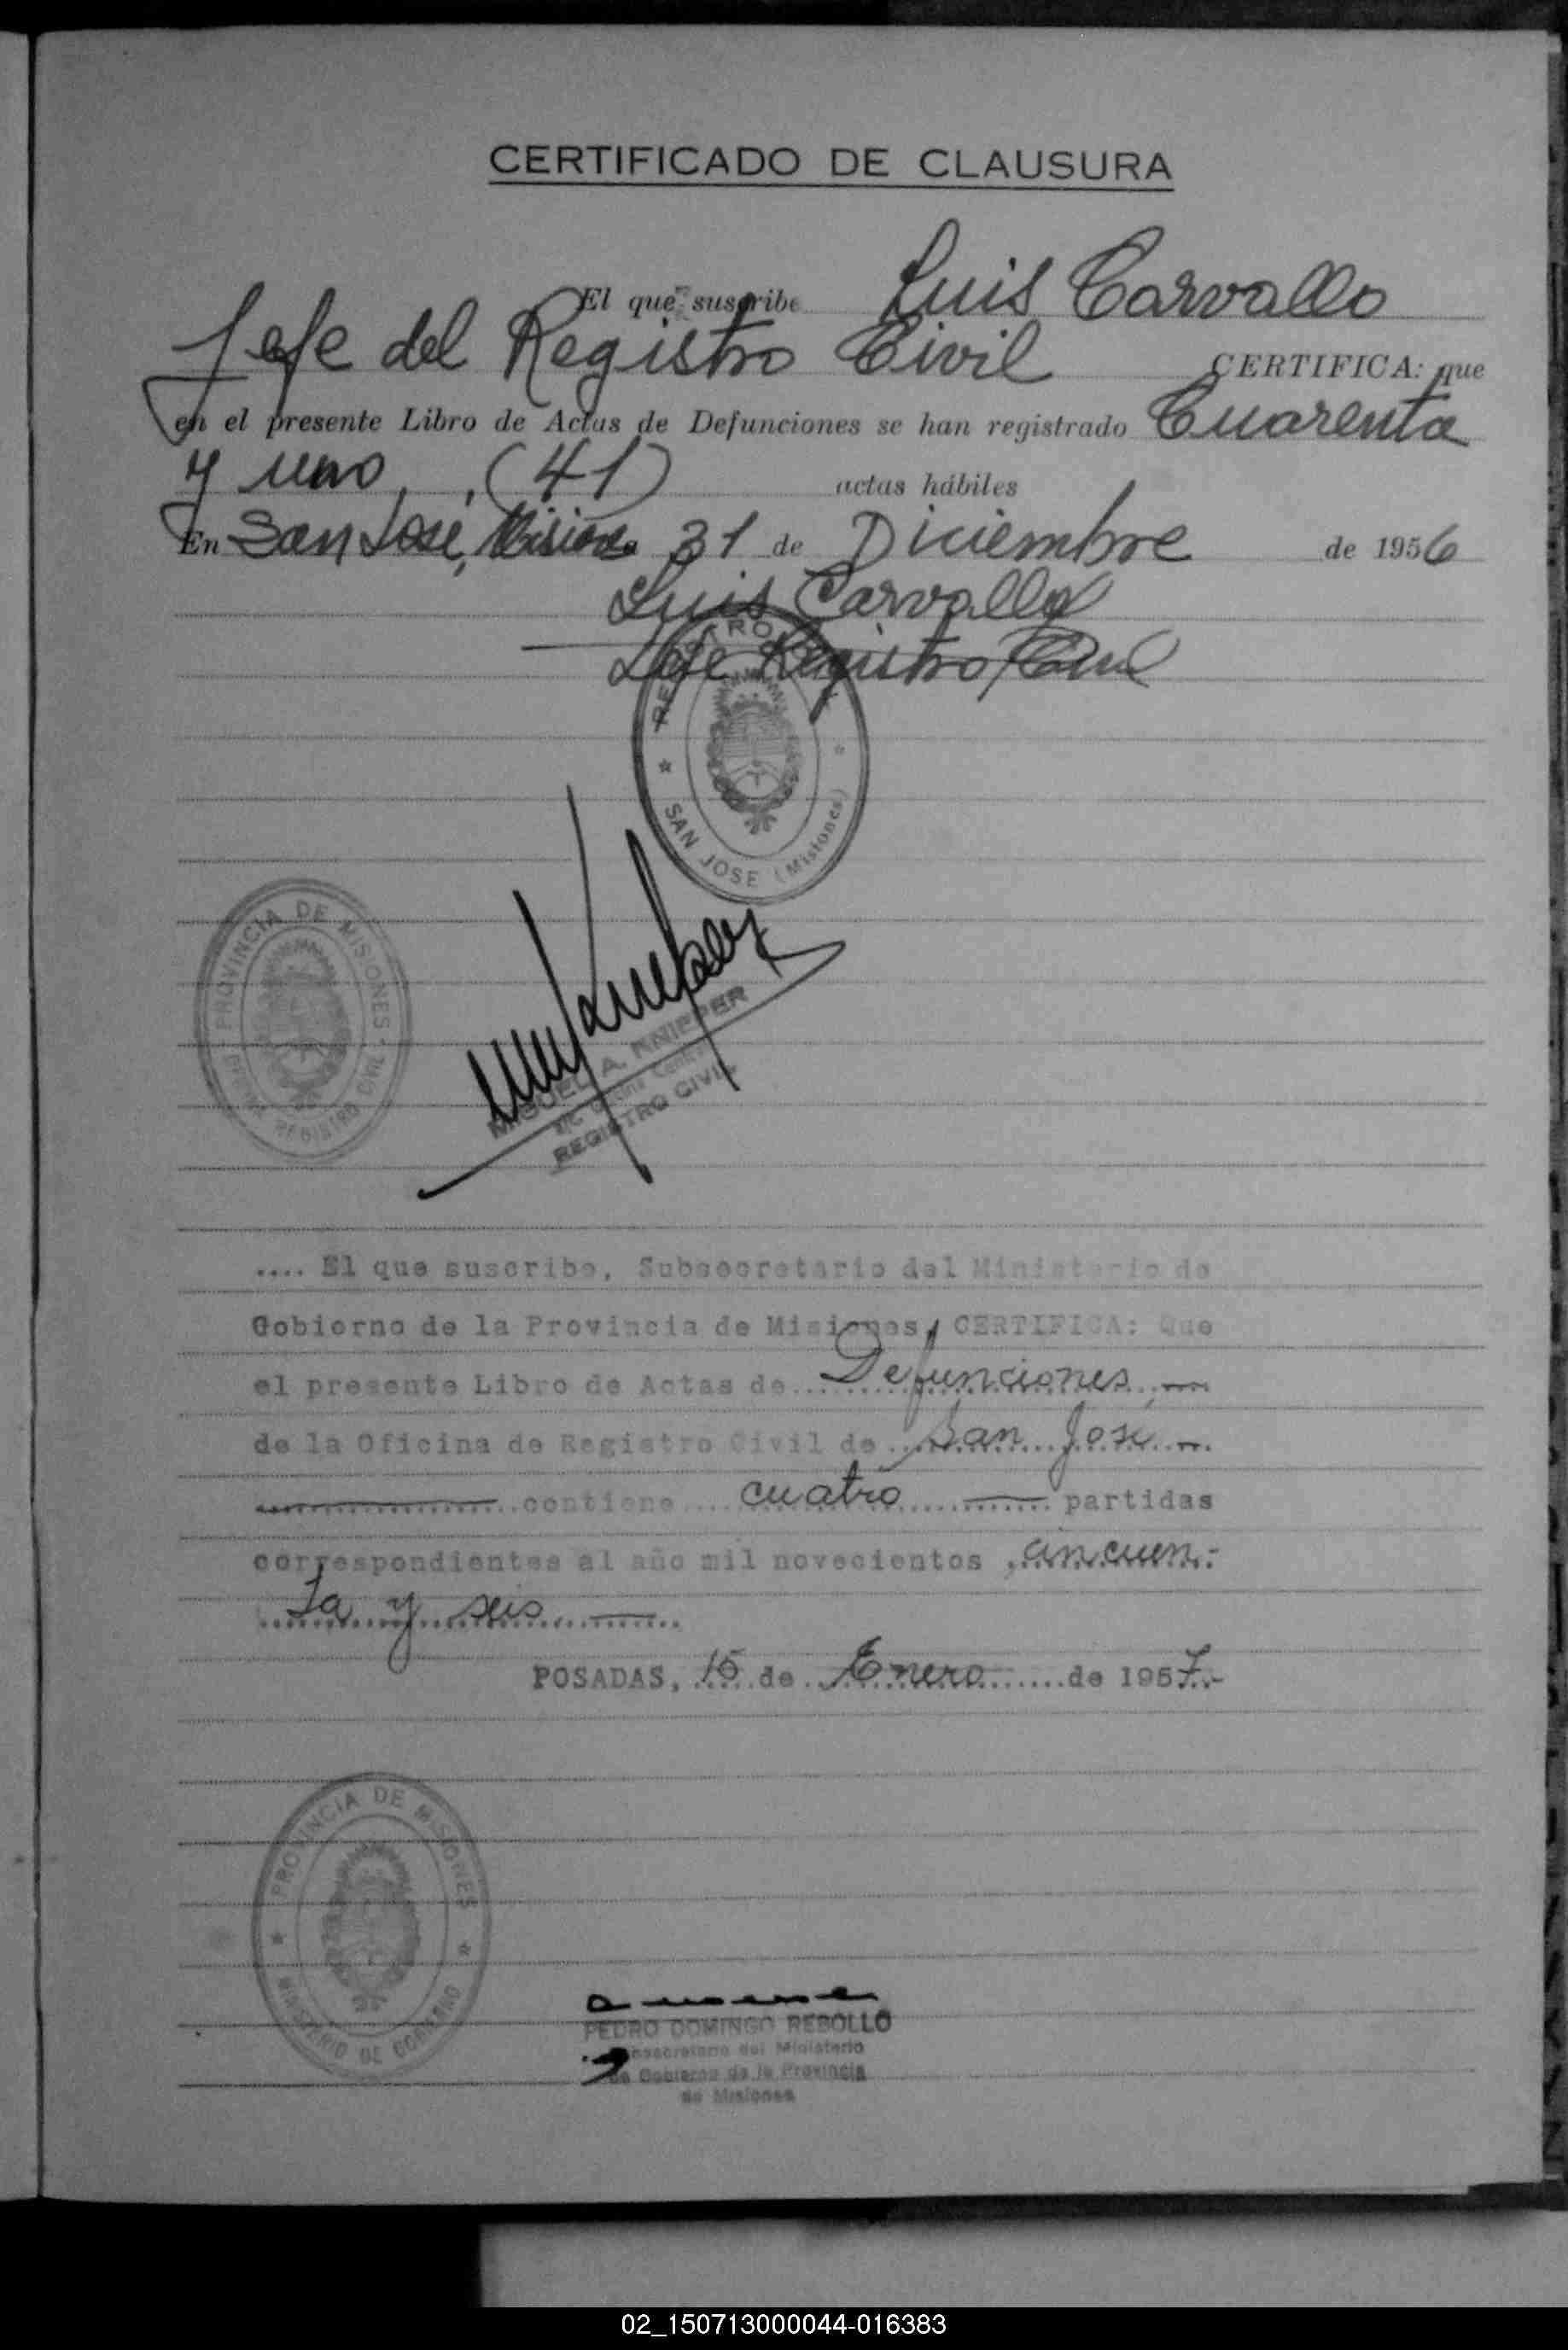 CERTIFICADO DE CLAUSURA
El que suscribe Luis Carvallo
Jefe del Registro Civil CERTIFICA: que
en el presente Libro de Actas de Defunciones se han registrado Cuarenta
y uno, (41) actas hábiles
En San José, Misiones 31 de Diciembre de 1956
Luis Carvallo
Jefe Registro Civil
REGISTRO
SAN JOSE (Misiones)
PROVINCIA DE MISIONES
REGISTRO CIVIL
MIGUEL A. KNIEPPER
REGISTRO CIVIL
.... El que suscribe, Subsecretario del Ministerio de
Gobierno de la Provincia de Misiones, CERTIFICA: Que
el presente Libro de Actas de Defunciones
de la Oficina de Registro Civil de San José
contiene cuatro partidas
correspondientes al año mil novecientos cincuen-
ta y seis
POSADAS, 15 de Enero de 1957.-
PROVINCIA DE MISIONES
MINISTERIO DE GOBIERNO
PEDRO DOMINGO REBOLLO
Subsecretario del Ministerio
de Gobierno de la Provincia
de Misiones
02_150713000044-016383